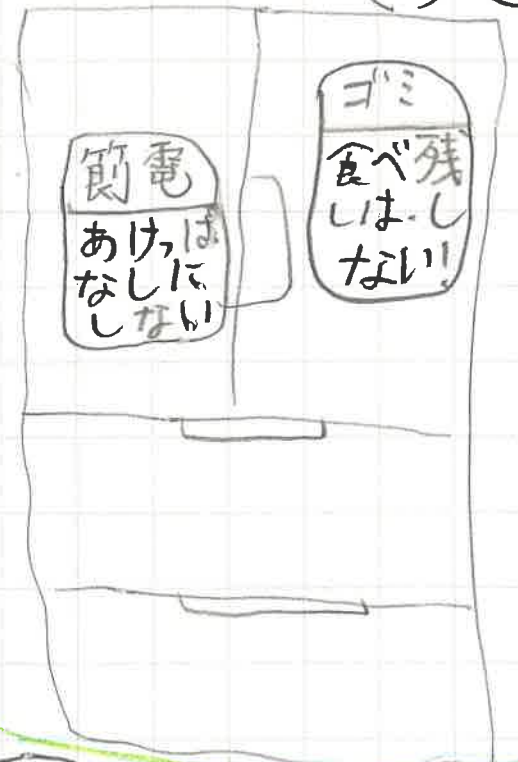 節電
あけっぱ
なしに
しない
ゴミ
食べ残
しは、し
ない!